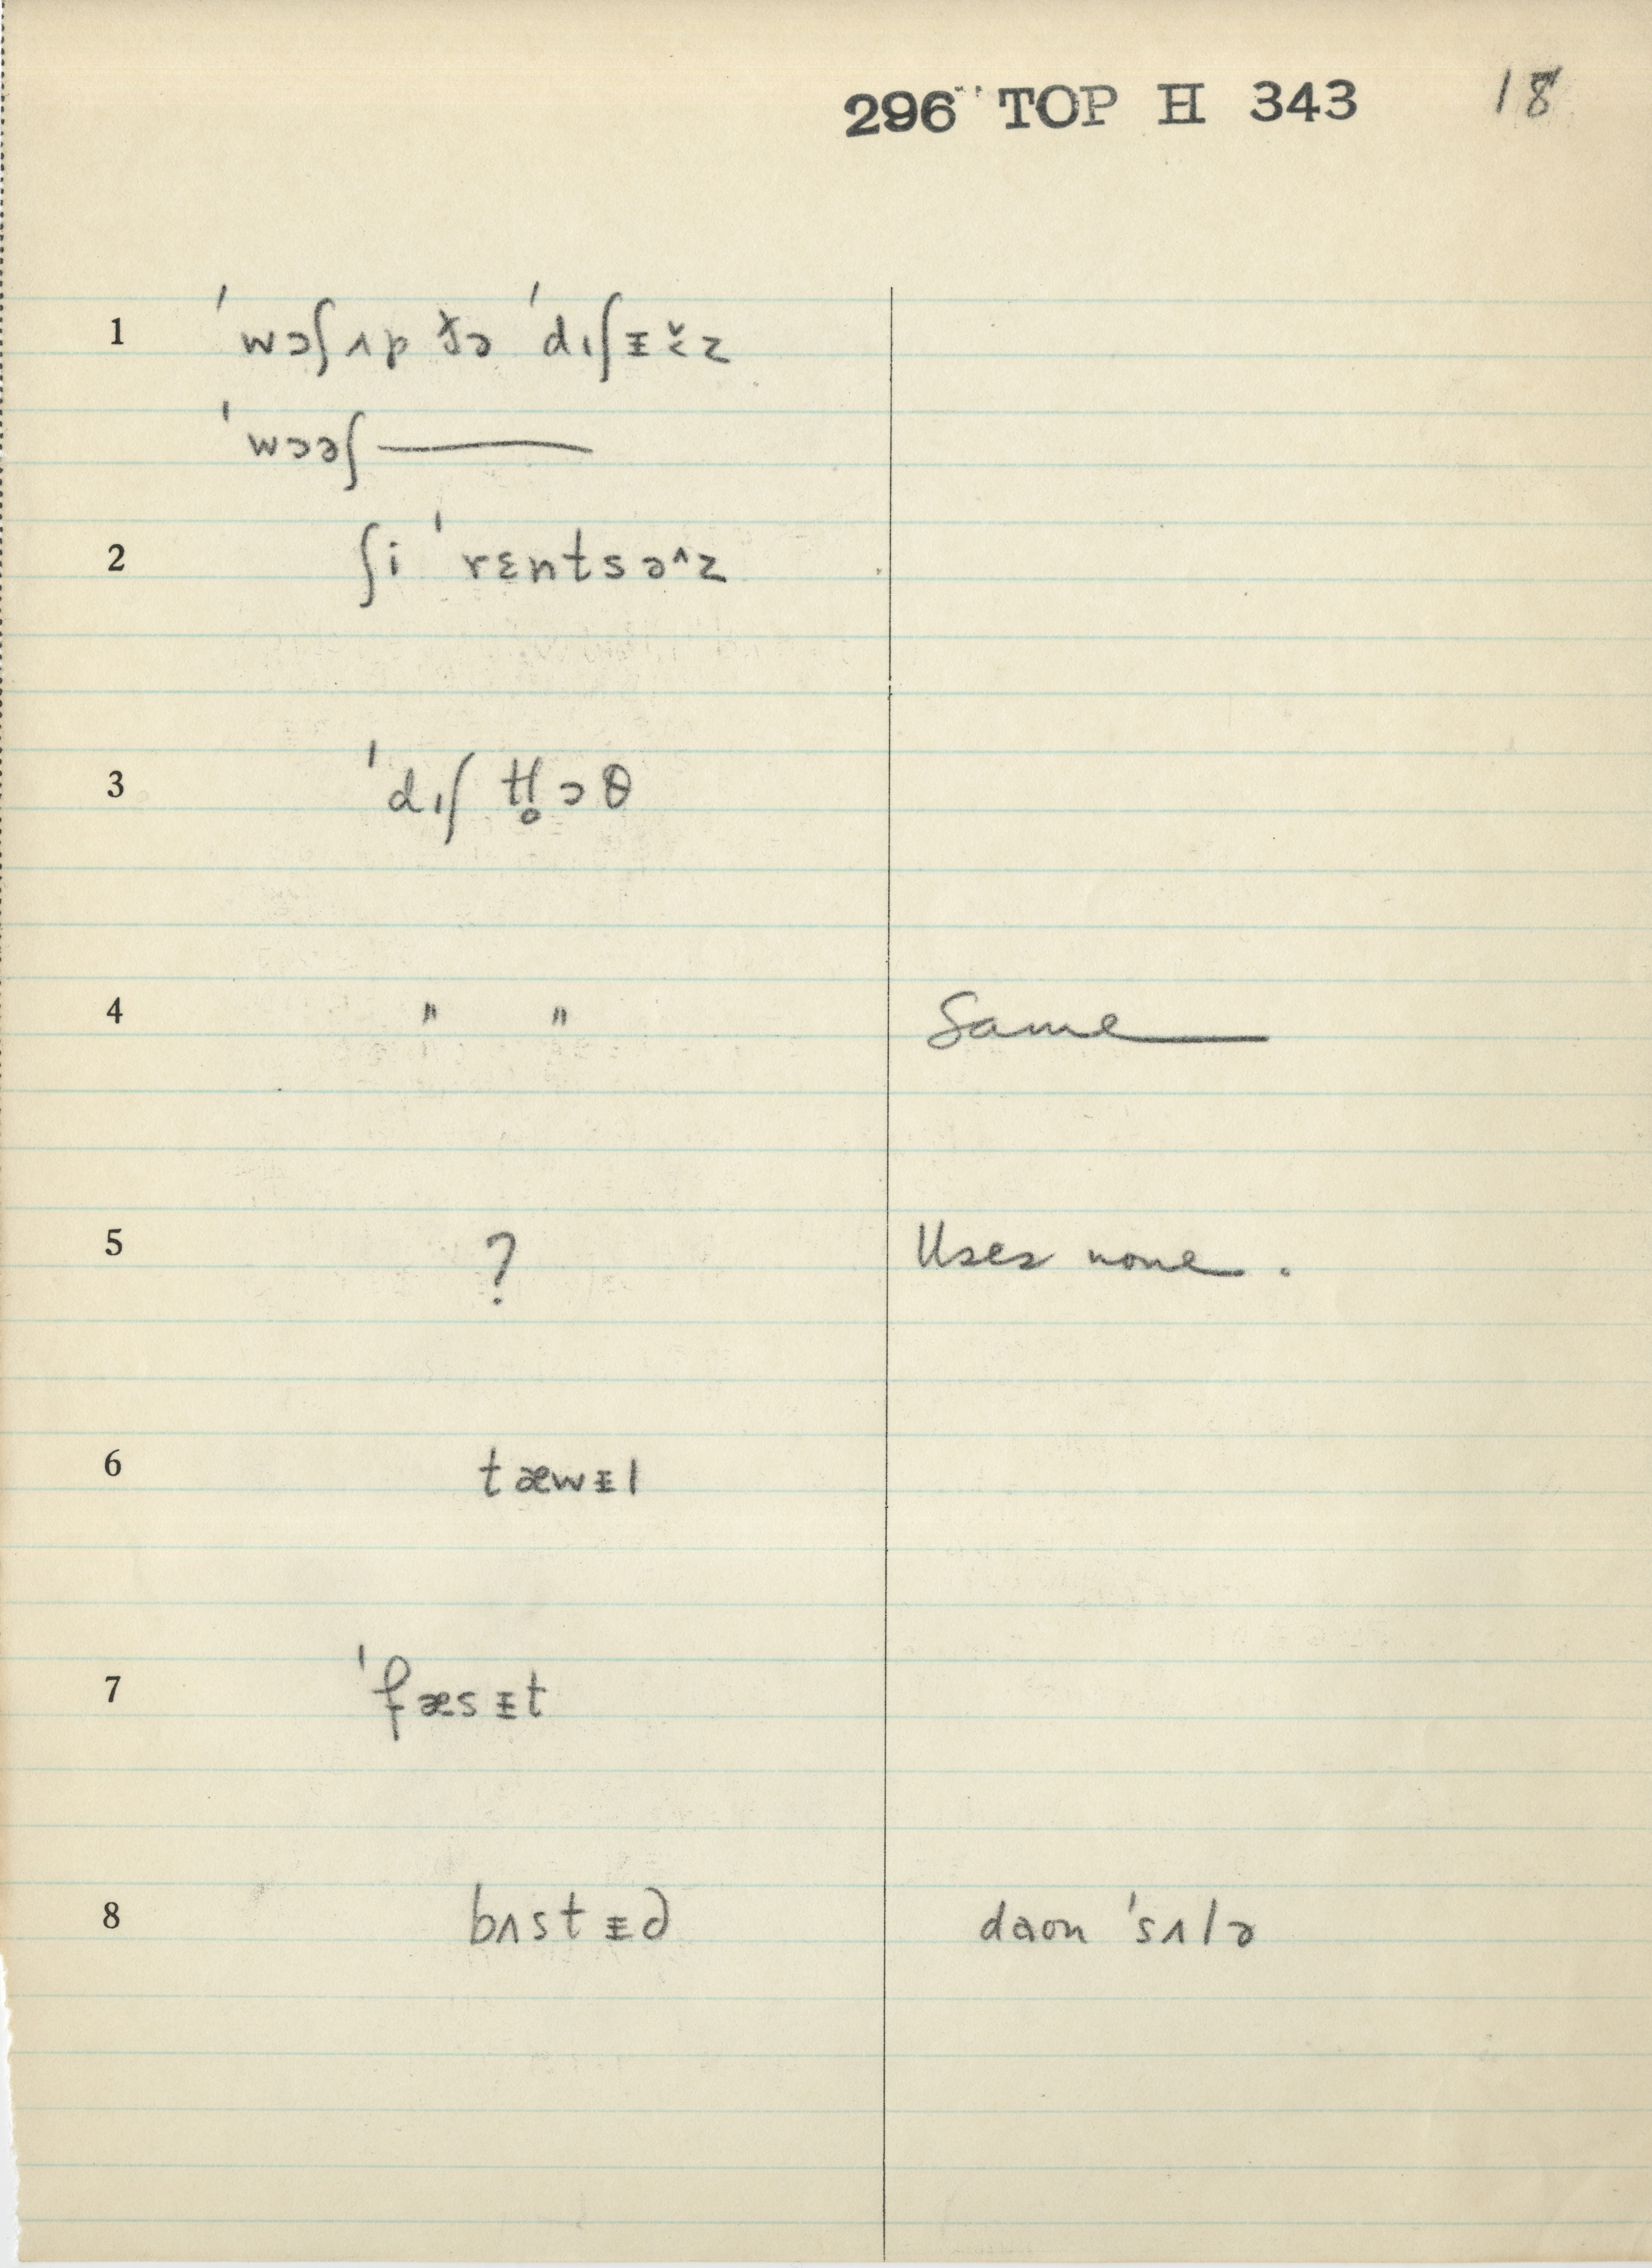 296 TOP H 343 18
1 ˈwɔʃʌp ðə ˈdɪʃᵻ̌z
ˈwɔəʃ ———
2 ʃi ˈrɛntsə^z
3 ˈdɪʃ kl̥ɔθ
4 " " Same
5 ? Uses none.
6 tæwᵻl
7 ˈfæsᵻt
8 bʌstᵻd daʊn ˈsʌlə